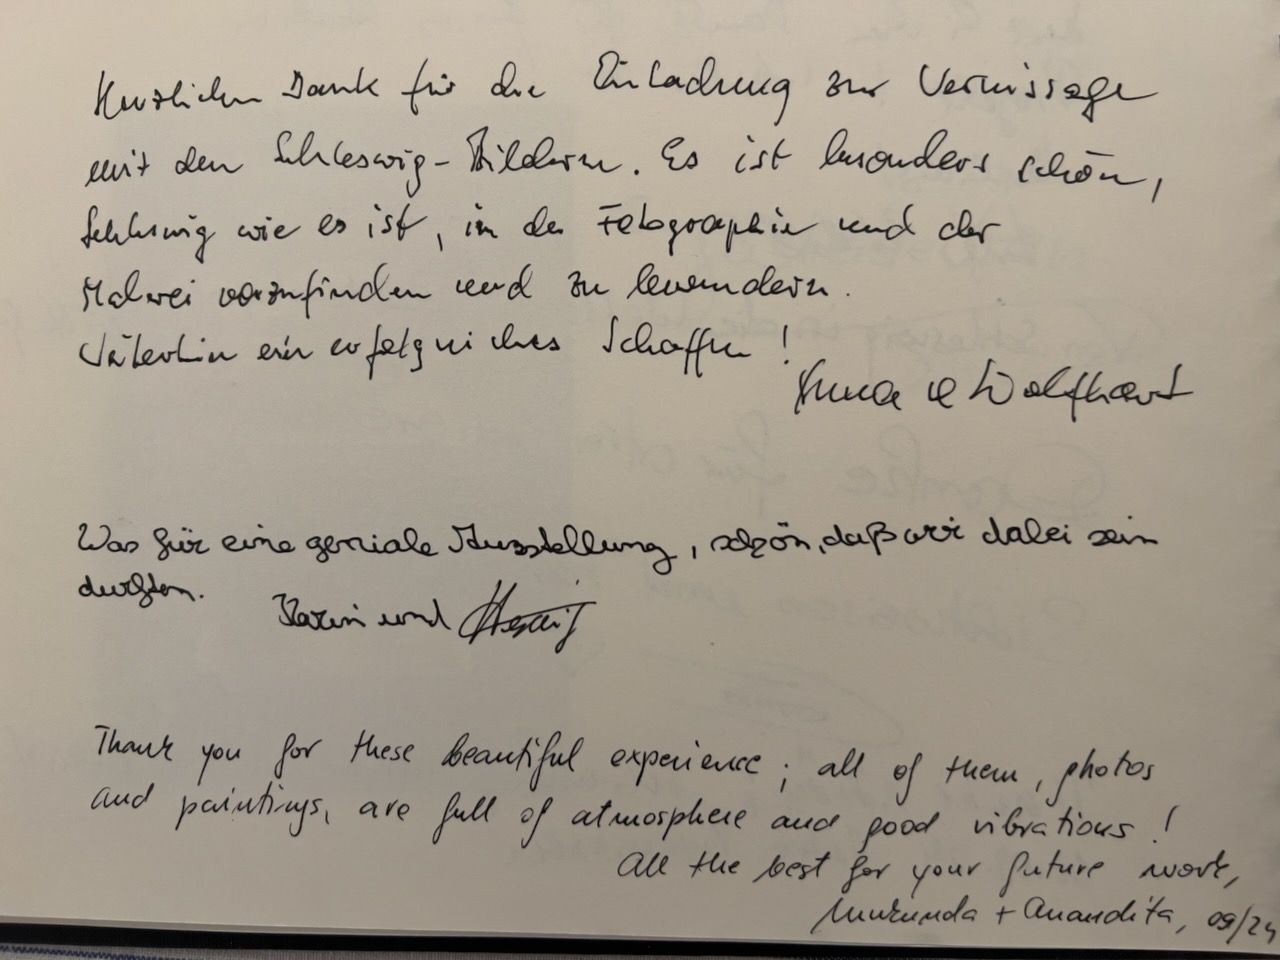 Herzlichen Dank für die Einladung zur Vernissage
mit den Schleswig-Bildern. Es ist besonders schön,
Schleswig wie es ist, in der Fotographie und der
Malerei vorzufinden und zu bewundern.
Weiterhin ein erfolgreiches Schaffen!
& Wolfhart
Was für eine geniale Ausstellung, schön, daß wir dabei sein
durften.
Karin und
Thank you for these beautiful experience; all of them, photos
and paintings, are full of atmosphere and good vibrations!
All the best for your future work,
Mukunda + Anandita, 09/24